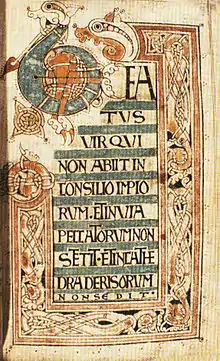 BEA
TUS
VIR QUI
NON ABIIT IN
CONSILIO IMPIO
RUM·ET IN VIA
PECCATORUM NON
STETIT·ET IN CATHE
DRA DERISORUM
NON SEDIT·